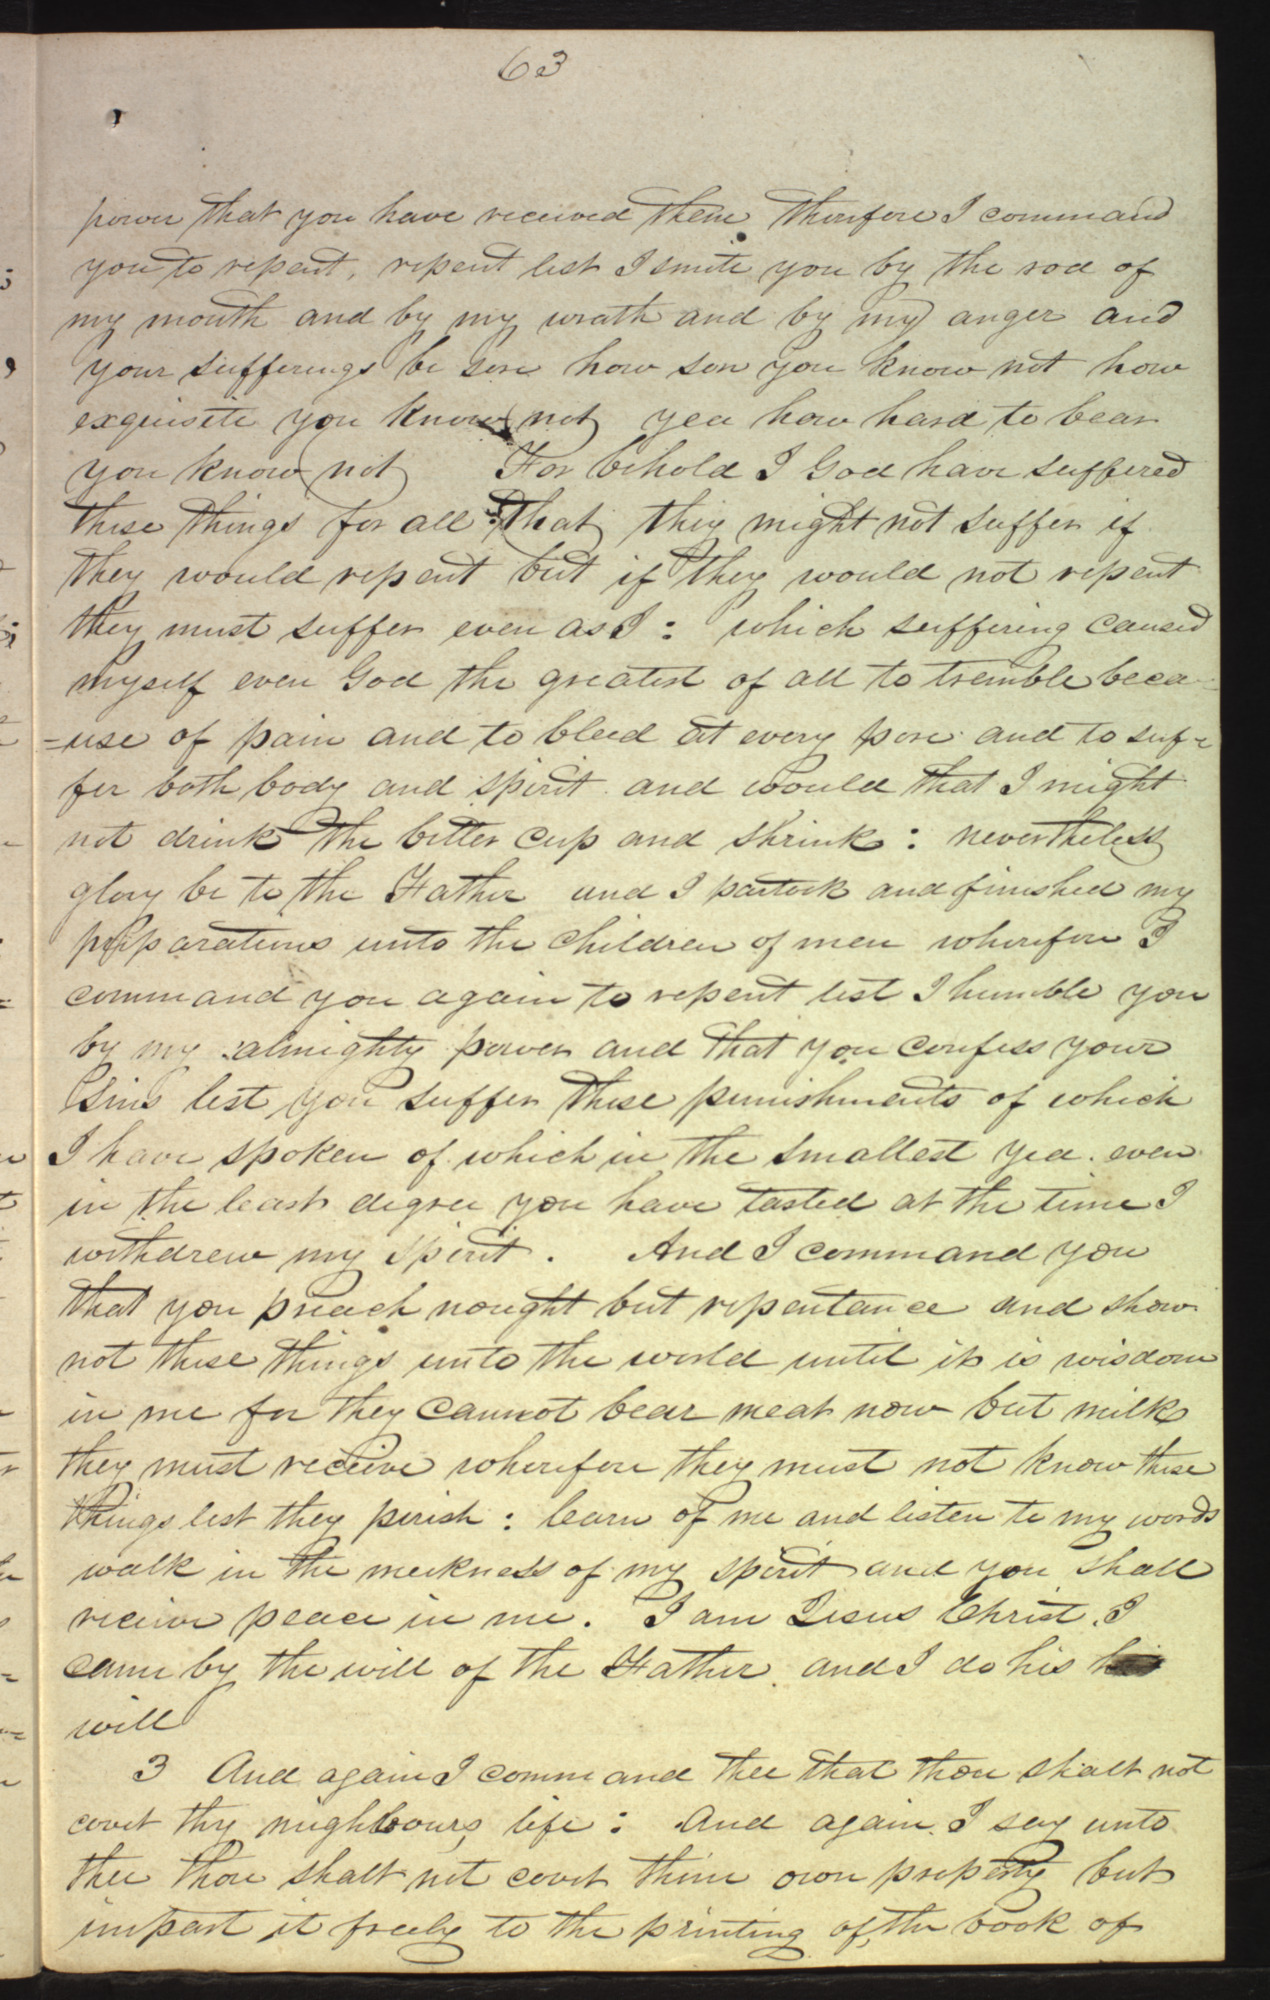 63
power that you have received them therefore I command
you to repent, repent lest I smite you by the rod of
my mouth and by my wrath and by my anger and
your sufferings be sore how sore you know not how
exquisite you know not yea how hard to bear
you know not For behold I God have suffered
these things for all that they might not suffer if
they would repent but if they would not repent
they must suffer even as I : which suffering caused
myself even God the greatest of all to tremble beca-
=use of pain and to bleed at every pore and to suf-
fer both body and spirit and would that I might
not drink the bitter cup and shrink : nevertheless
glory be to the Father and I partook and finished my
preparations unto the children of men wherefore I
command you again to repent lest I humble you
by my almighty power and that you confess your
sins lest you suffer these punishments of which
I have spoken of which in the smallest yea even
in the least degree you have tasted at the time I
withdrew my spirit . And I command you
that you preach nought but repentance and show
not these things unto the world until it is wisdom
in me for they cannot bear meat now but milk
they must receive wherefore they must not know these
things lest they perish : learn of me and listen to my words
walk in the meekness of my spirit and you shall
receive peace in me. I am Jesus Christ. I
came by the will of the Father and I do his
will
3 And again I command thee that thou shalt not
covet thy neighbours life : And again I say unto
thee thou shalt not covet thine own property but
impart it freely to the printing of the book of